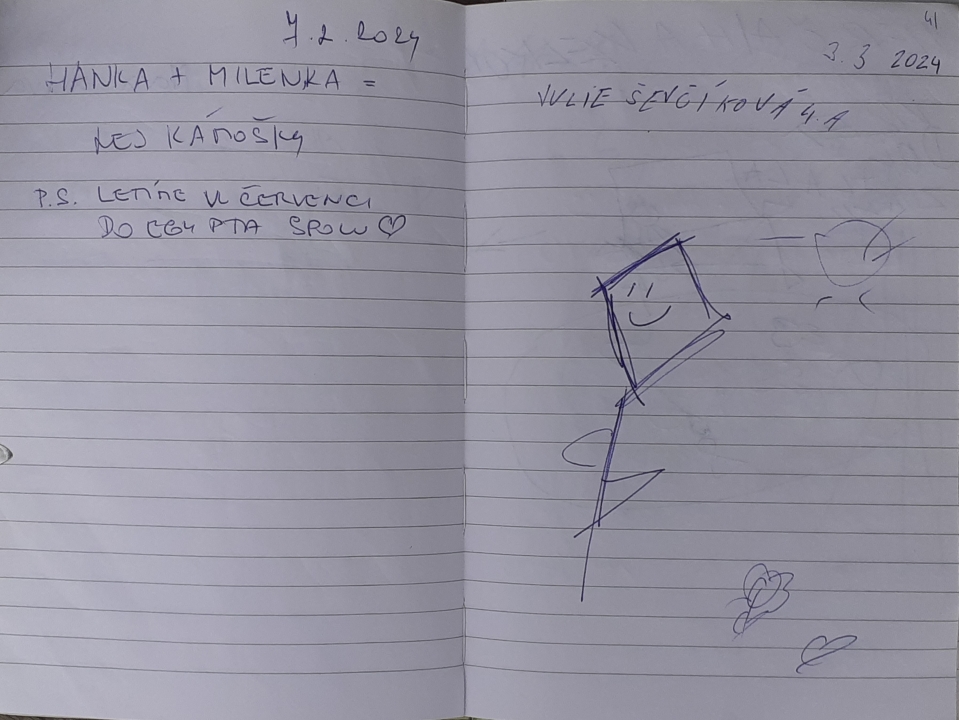 7.2.2024
HANKA + MILENKA =
NEJ KÁMOŠKY
P.S. LETÍME V ČERVENCI
DO EGYPTA SPOLU ♡
41
3.3 2024
JULIE ŠEVČÍKOVÁ 4.A